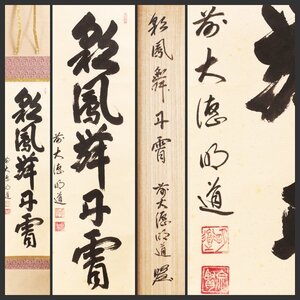 彩鳳舞丹霄
前大徳明道
彩鳳舞丹霄
前大徳明道
彩鳳舞丹霄 前大徳明道
前大徳明道